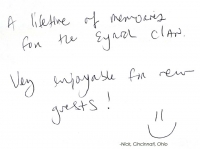 A lifetime of memories
for the Eyrich Clan.
Very enjoyable for new
guests!
-Nick, Cincinnati, Ohio